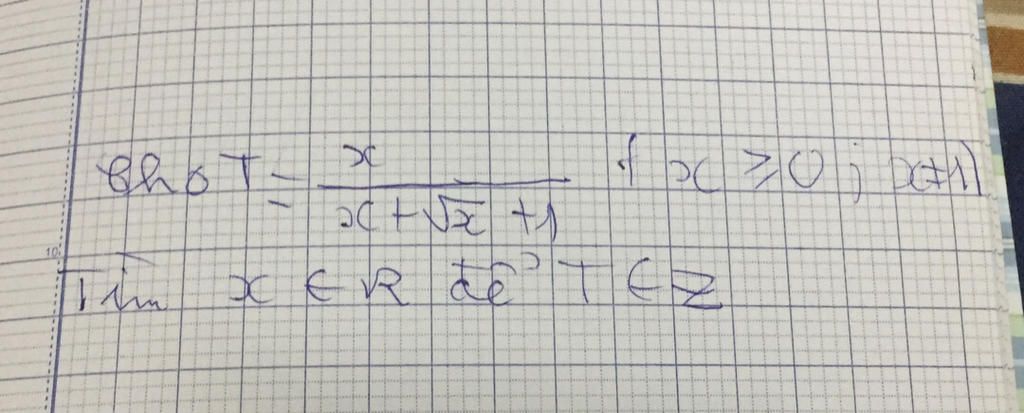 Cho T = x / (x + √x + 1) ( x ≥ 0 ; x ≠ 1)
Tìm x ∈ R để T ∈ Z